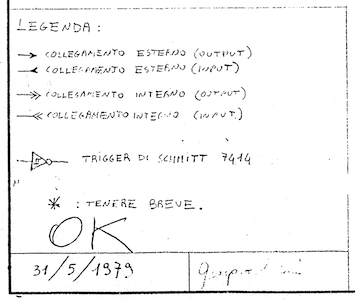 LEGENDA:
COLLEGAMENTO ESTERNO (OUTPUT)
COLLEGAMENTO ESTERNO (INPUT)
COLLEGAMENTO INTERNO (OUTPUT)
COLLEGAMENTO INTERNO (INPUT)
TRIGGER DI SCHMITT 7414
* : TENERE BREVE.
OK
31/5/1979